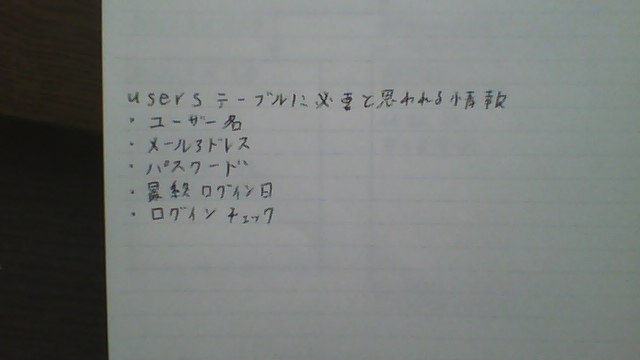 usersテーブルに必要と思われる情報
・ユーザー名
・メールアドレス
・パスワード
・最終ログイン日
・ログインチェック